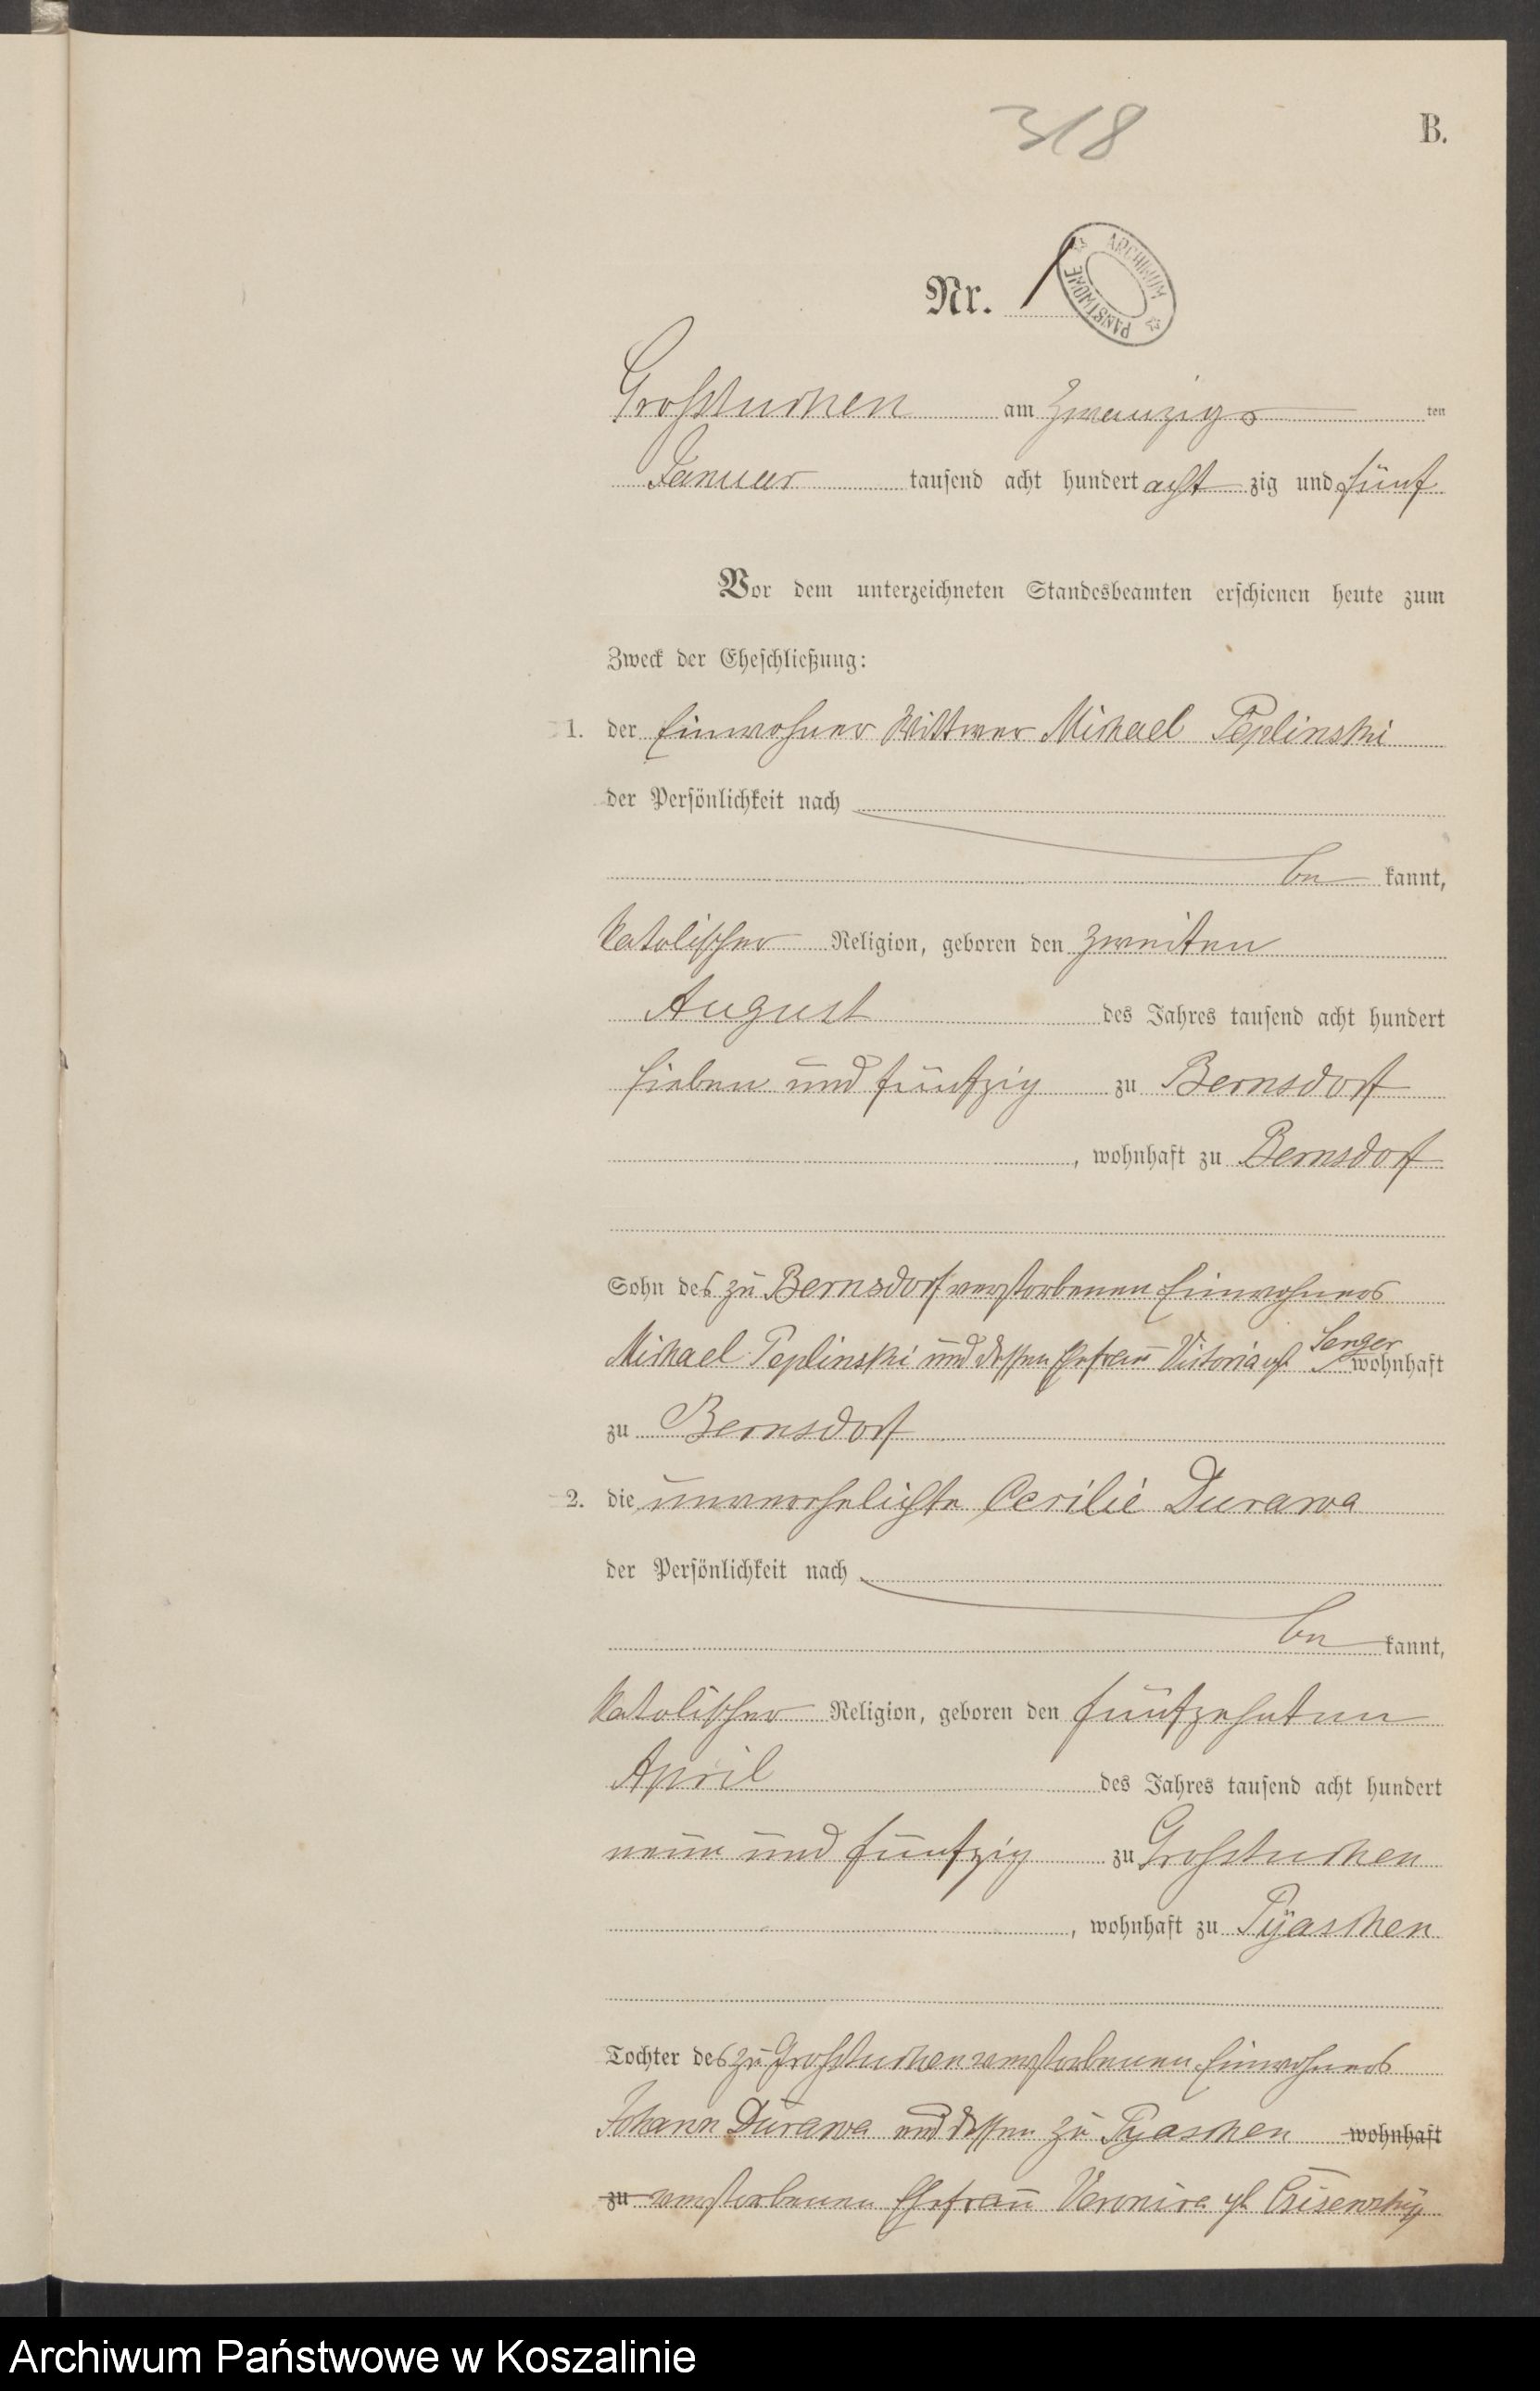 318
B.
Nr. 1
ARCHIWUM PAŃSTWOWE
Großtuchen am Zwanzigs ten
Januar tausend acht hundert acht zig und fünf
Vor dem unterzeichneten Standesbeamten erschienen heute zum
Zweck der Eheschließung:
1. der Einwohner Wittwer Michael Peplinski
der Persönlichkeit nach
be kannt,
katolischer Religion, geboren den zweiten
August des Jahres tausend acht hundert
sieben und fünfzig zu Bernsdorf
, wohnhaft zu Bernsdorf
Sohn des zu Bernsdorf verstorbenen Einwohners
Michael Peplinski und dessen Ehefrau Victoria geb. Senger wohnhaft
zu Bernsdorf
2. die unverehelichte Cecilie Durawa
der Persönlichkeit nach
be kannt,
katolischer Religion, geboren den fünfzehnten
April des Jahres tausend acht hundert
neun und fünfzig zu Großtuchen
, wohnhaft zu Pÿaschen
Tochter des zu Großtuchen verstorbenen Einwohners
Johann Durawa und dessen zu Pyaschen wohnhaft
zu verstorbenen Ehefrau Veronica geb.
Archiwum Państwowe w Koszalinie